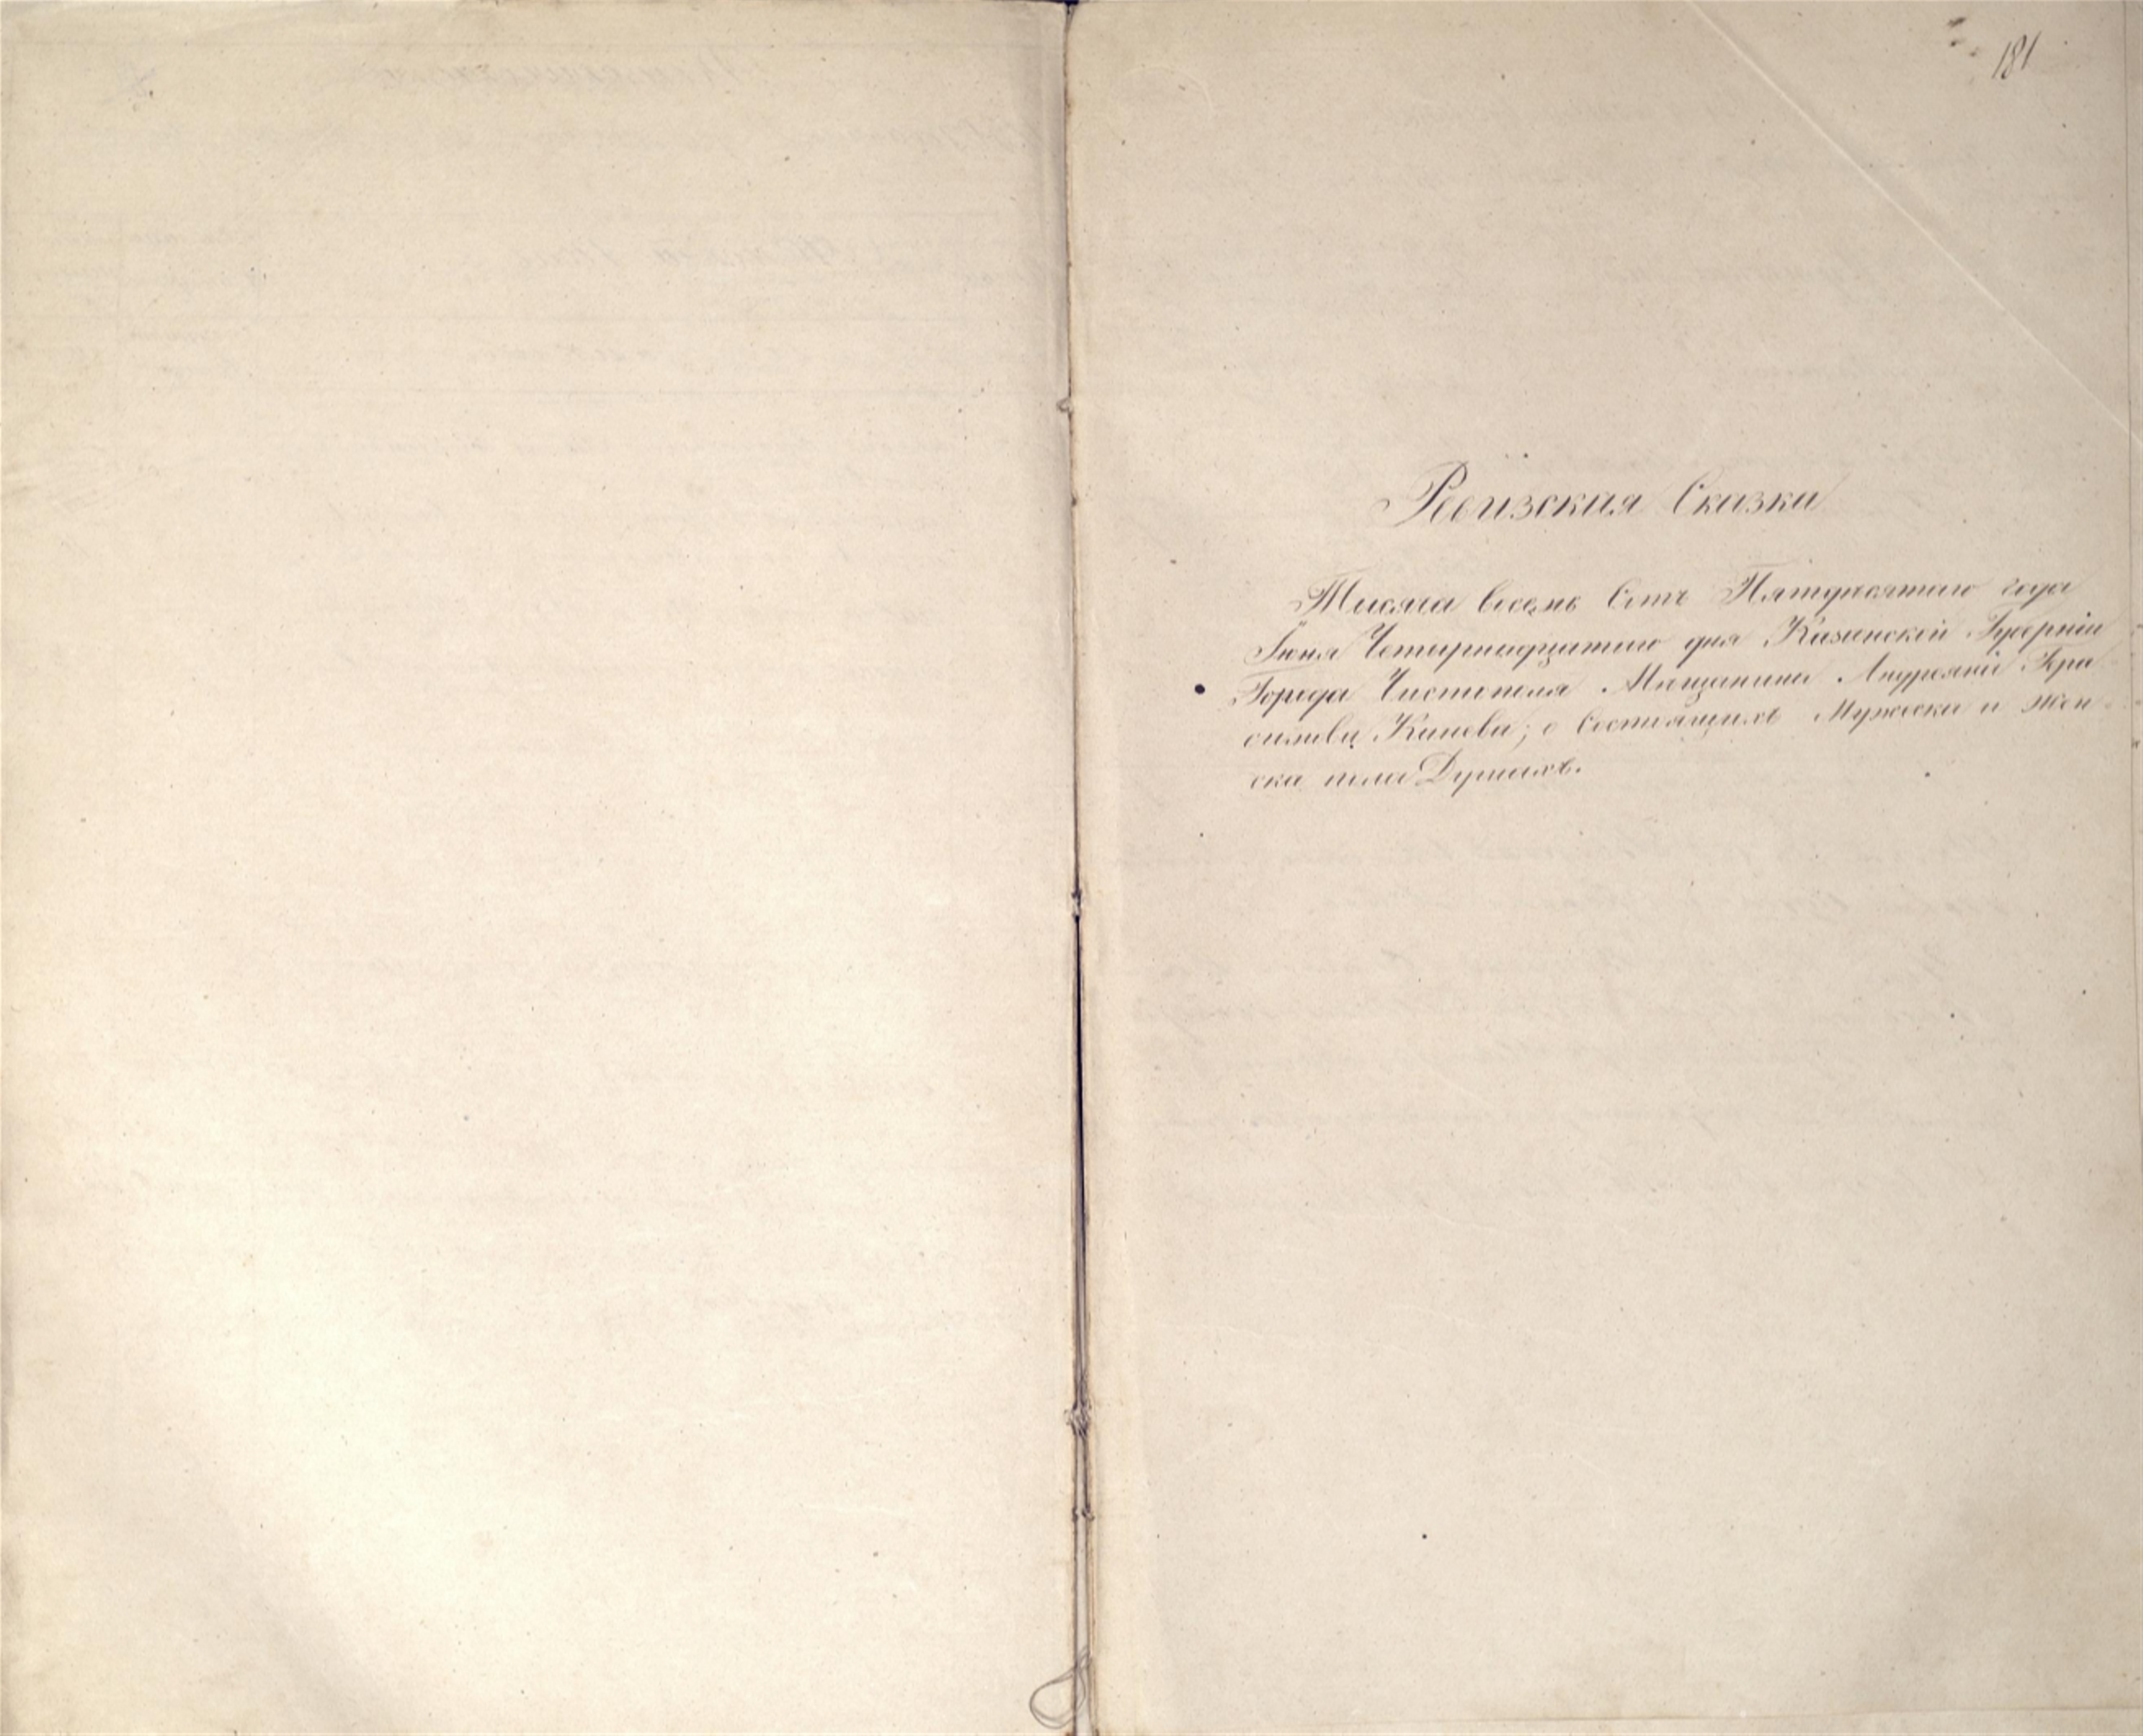 181
Ревизская Сказка
Тысяча восемь Сотъ Пятьдесятаго года
Іюня Четырнадцатаго дня Казанской Губерніи
Города Чистополя Мѣщанина Андреяна
Канева; о Состоящихъ Мужеска и жен
ска пола Душахъ.